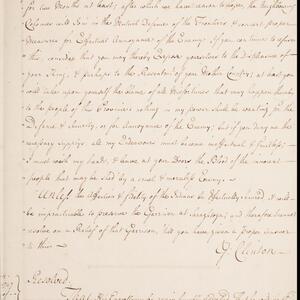 for two Months at least; after which we have reason to hope the Neighbouring
Colonies will Join in the Mutual Defence of the Frontiers & concert proper
Measures for Effectual Annoyance of the Enemy: If you continue to refuse
this, consider that you may thereby Expose yourselves to the Displeasure of
your King, & perhaps to the Resentm't of your Mother Country; at least you
will take upon yourselves the blame of all Misfortunes that may happen thereby
to the people of this Province; nothing in my power shall be wanting for the
Defence & Security, or for Annoyance of the Enemy; but if you deny me the
necessary supplys all my Endeavours must become ineffectual & fruitless;
I must wash my hands, & leave at your Doors the Blood of the innocent
people that may be shed by a cruel & merciless Enemy.
Unless the Affection & fidelity of the Indians be Effectually secured it will
be impracticable to preserve the Garrison at Saraghtoga; and therefore I cannot
resolve on a Relief of that Garrison, 'till you have given a proper answer
to this
G Clinton
Resolved